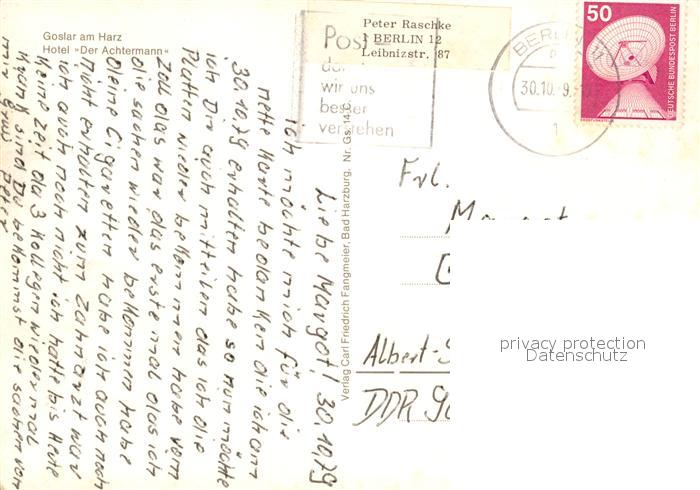 Goslar am Harz
Hotel »Der Achtermann«
Peter Raschke
1 BERLIN 12
Leibnizstr. 87
Post
wir uns
besser
verstehen
BERLIN
30.10.
1
50
DEUTSCHE BUNDESPOST BERLIN
Verlag Carl Friedrich Fangmeier, Bad Harzburg, Nr. Gs. 14 C
Liebe Margot! 30.10.79
ich möchte mich für die
nette Karte bedanken die ich am
30.10.79 erhalten habe so nun möchte
ich Dir auch mitteilen das ich die
Platten wieder bekommen habe vom
Zoll das war das erste mal das ich
die sachen wieder bekommen habe
Deine Cigaretten habe ich auch noch
nicht erhalten zum Zahnarzt war
ich auch noch nicht ich hatte bis Heute
Keine Zeit da 3 Kollegen wieder mal
Krank sind Du bekommst die sachen von
mir Gruß Peter
Frl.
Albert-
DDR
privacy protection
Datenschutz